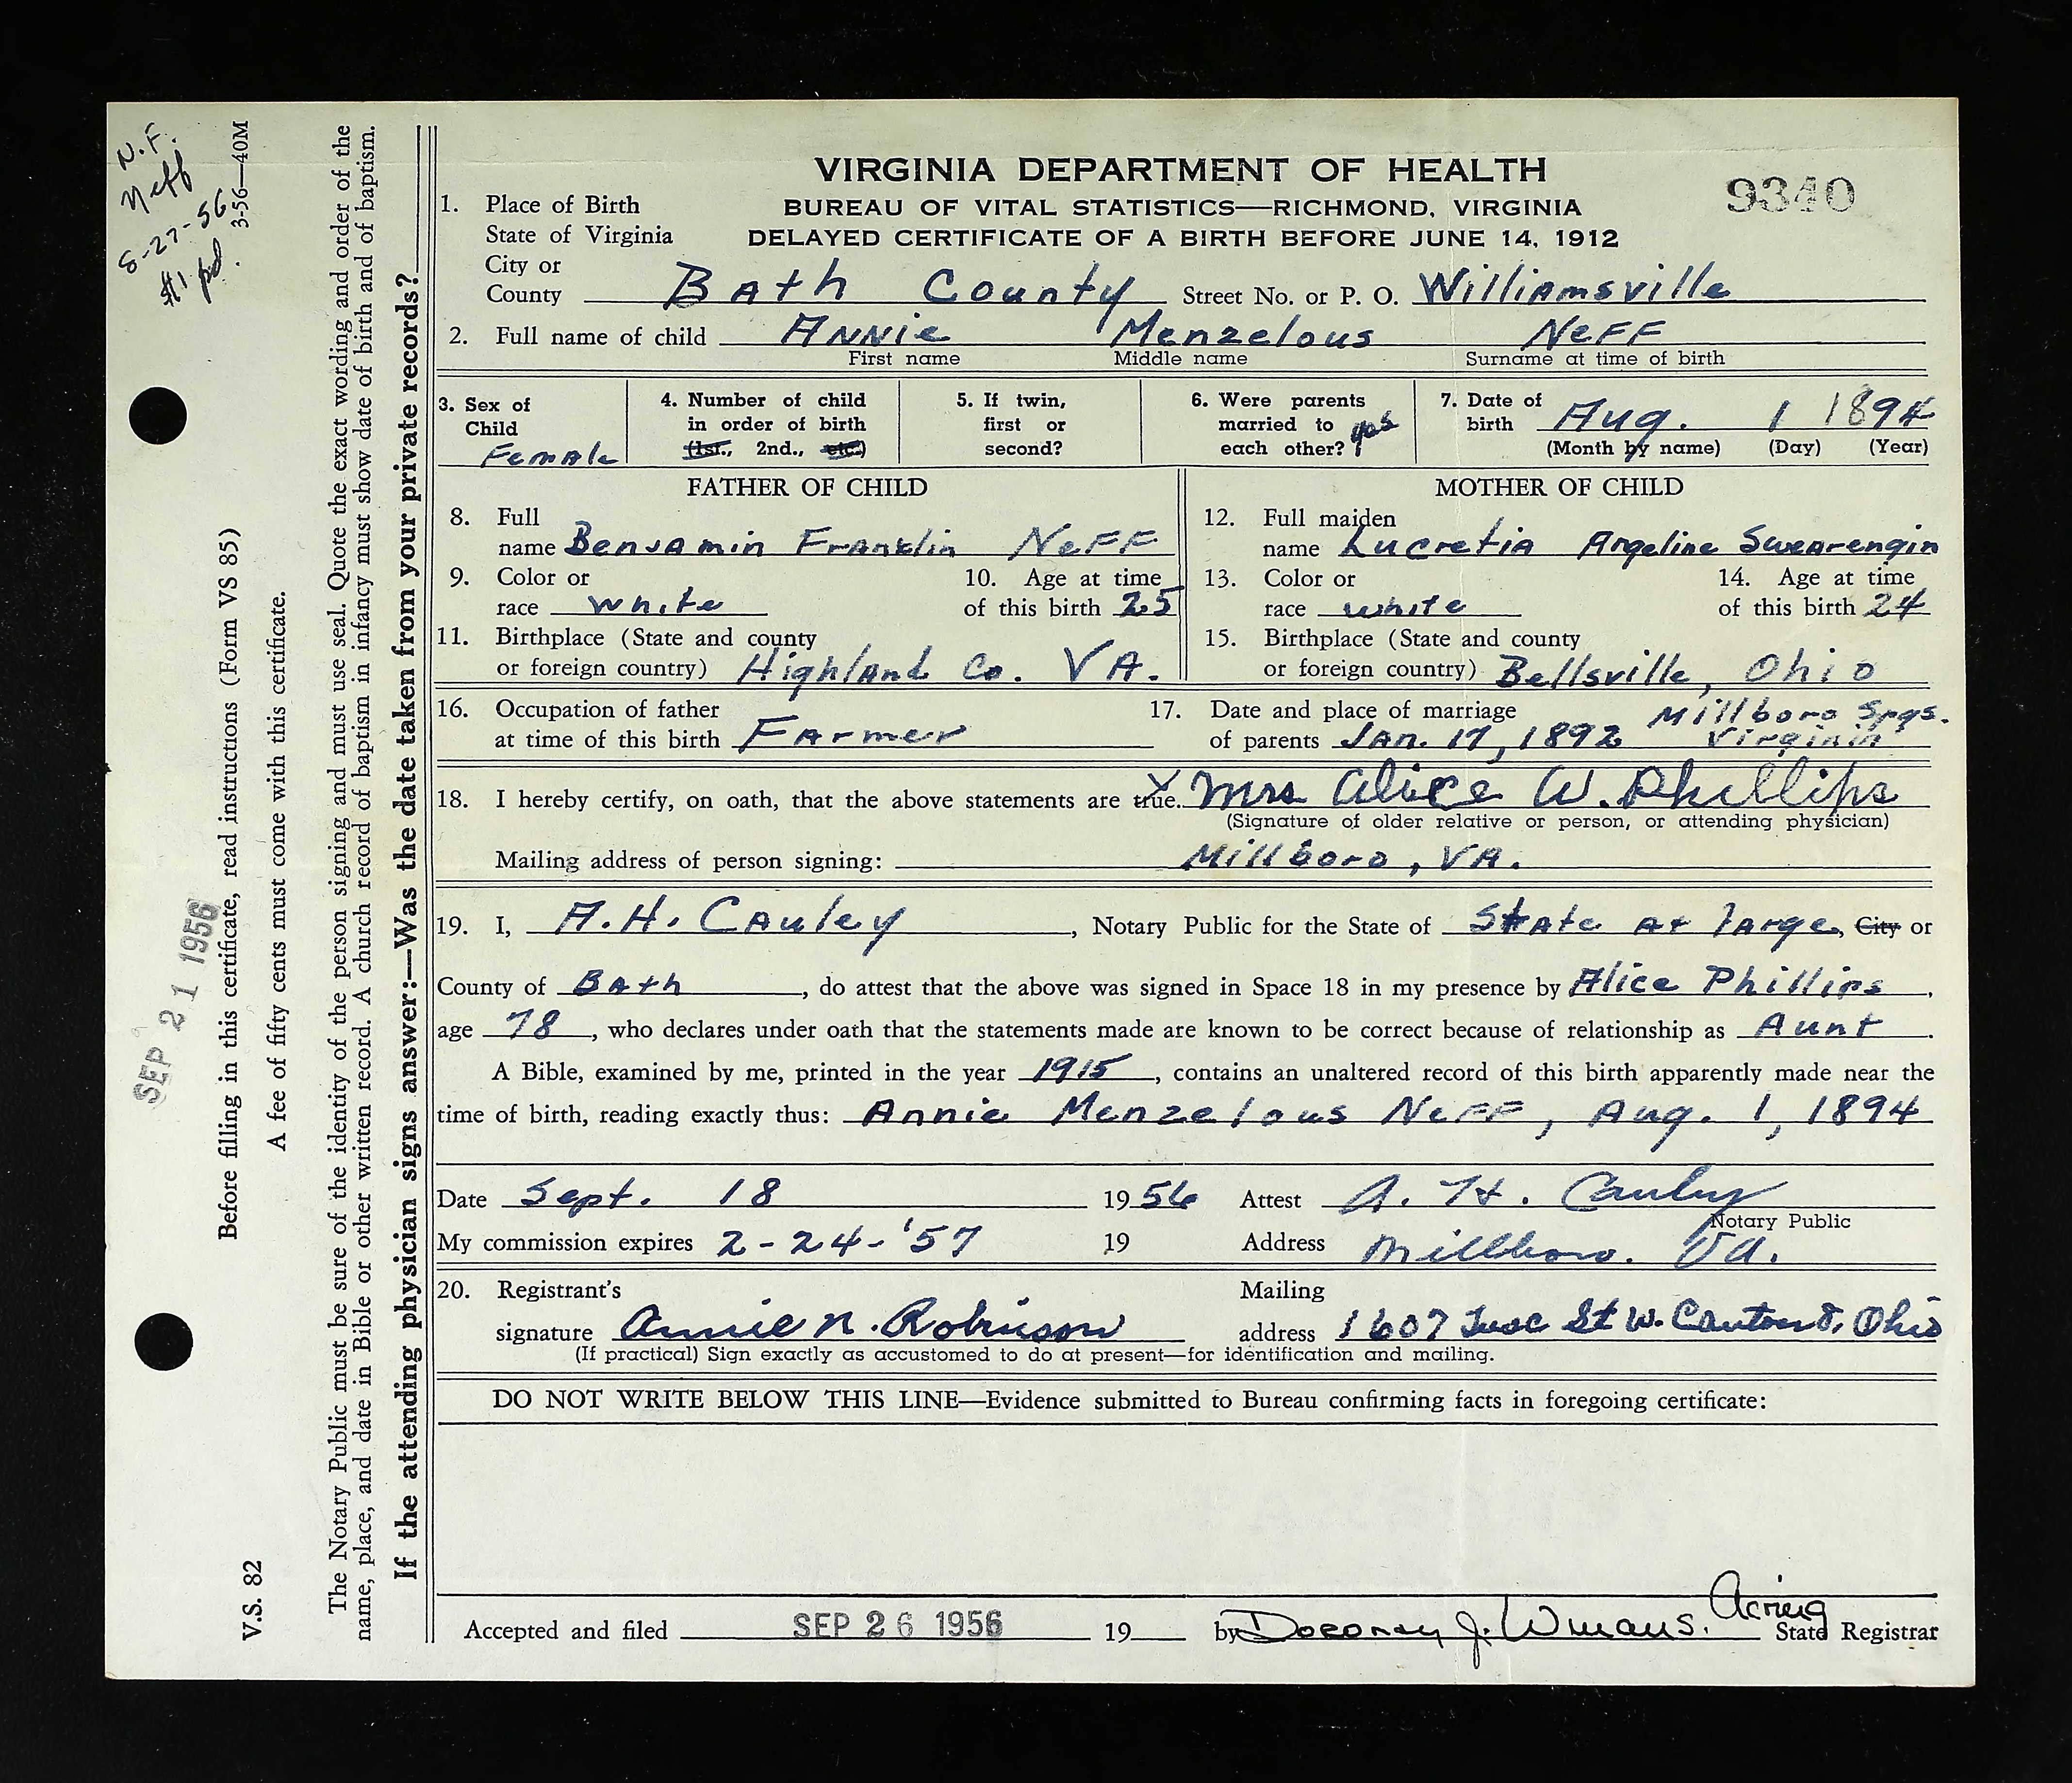 N.F.
Neff
8-27-56
#1 pd.
3-56—40M
SEP 21 1956
Before filling in this certificate, read instructions (Form VS 85)
A fee of fifty cents must come with this certificate.
V.S. 82
The Notary Public must be sure of the identity of the person signing and must use seal. Quote the exact wording and order of the
name, place, and date in Bible or other written record. A church record of baptism in infancy must show date of birth and of baptism.
If the attending physician signs answer:—Was the date taken from your private records?
VIRGINIA DEPARTMENT OF HEALTH
9340
BUREAU OF VITAL STATISTICS—RICHMOND, VIRGINIA
DELAYED CERTIFICATE OF A BIRTH BEFORE JUNE 14, 1912
1. Place of Birth
State of Virginia
City or
County Bath County Street No. or P. O. Williamsville
2. Full name of child Annie Menzelous Neff
First name Middle name Surname at time of birth
3. Sex of Child Female
4. Number of child in order of birth (1st., 2nd., etc.)
5. If twin, first or second?
6. Were parents married to each other? yes
7. Date of birth Aug. 1 1894
(Month by name) (Day) (Year)
FATHER OF CHILD
8. Full
name Benjamin Franklin Neff
9. Color or race white 10. Age at time of this birth 25
11. Birthplace (State and county
or foreign country) Highland Co. VA.
MOTHER OF CHILD
12. Full maiden
name Lucretia Angeline Swearengin
13. Color or race white 14. Age at time of this birth 24
15. Birthplace (State and county
or foreign country) Bellsville, Ohio
16. Occupation of father
at time of this birth Farmer
17. Date and place of marriage
of parents Jan. 17, 1892 Millboro Spgs. Virginia
18. I hereby certify, on oath, that the above statements are true. X Mrs Alice W. Phillips
(Signature of older relative or person, or attending physician)
Mailing address of person signing: Millboro, VA.
19. I, A.H. Cauley, Notary Public for the State of State at large, City or
County of Bath, do attest that the above was signed in Space 18 in my presence by Alice Phillips,
age 78, who declares under oath that the statements made are known to be correct because of relationship as Aunt.
A Bible, examined by me, printed in the year 1915, contains an unaltered record of this birth apparently made near the
time of birth, reading exactly thus: Annie Menzelous Neff, Aug. 1, 1894
Date Sept. 18 1956 Attest A. H. Cauley
Notary Public
My commission expires 2-24-'57 19 Address Millboro. Va.
20. Registrant's
signature Annie N. Robinson
Mailing
address 1607 Tusc St W. Canton 8, Ohio
(If practical) Sign exactly as accustomed to do at present—for identification and mailing.
DO NOT WRITE BELOW THIS LINE—Evidence submitted to Bureau confirming facts in foregoing certificate:
Accepted and filed SEP 26 1956 19 by Dorothy J. Winans. Acting State Registrar